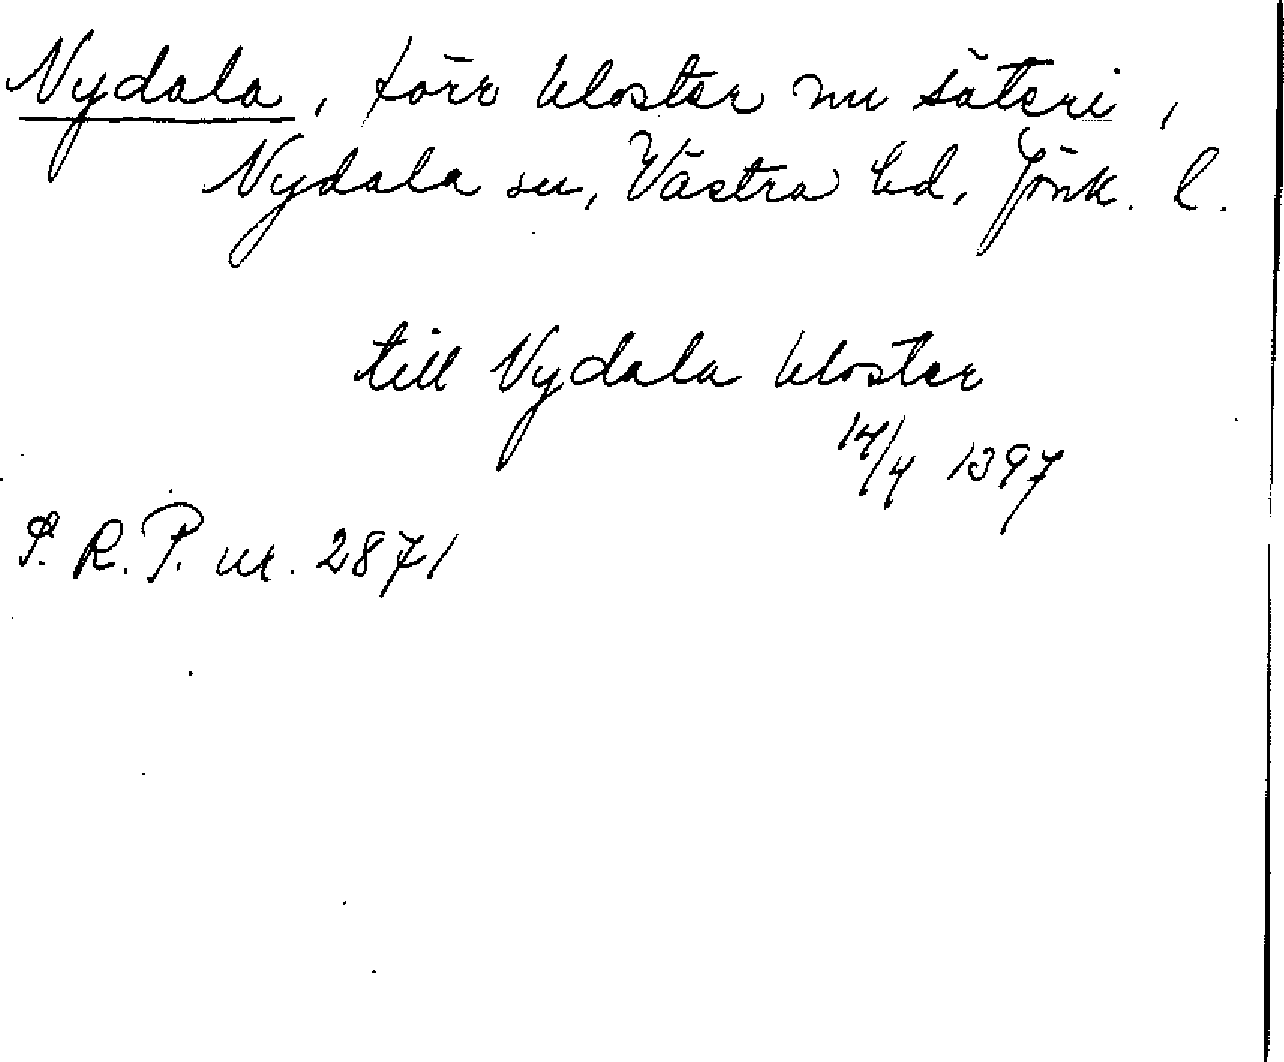 Nydala, förr kloster nu säteri,
Nydala sn, Västra hd, Jönk. l.
till Nydala kloster
14/4 1397
S. R. P. nr. 2871